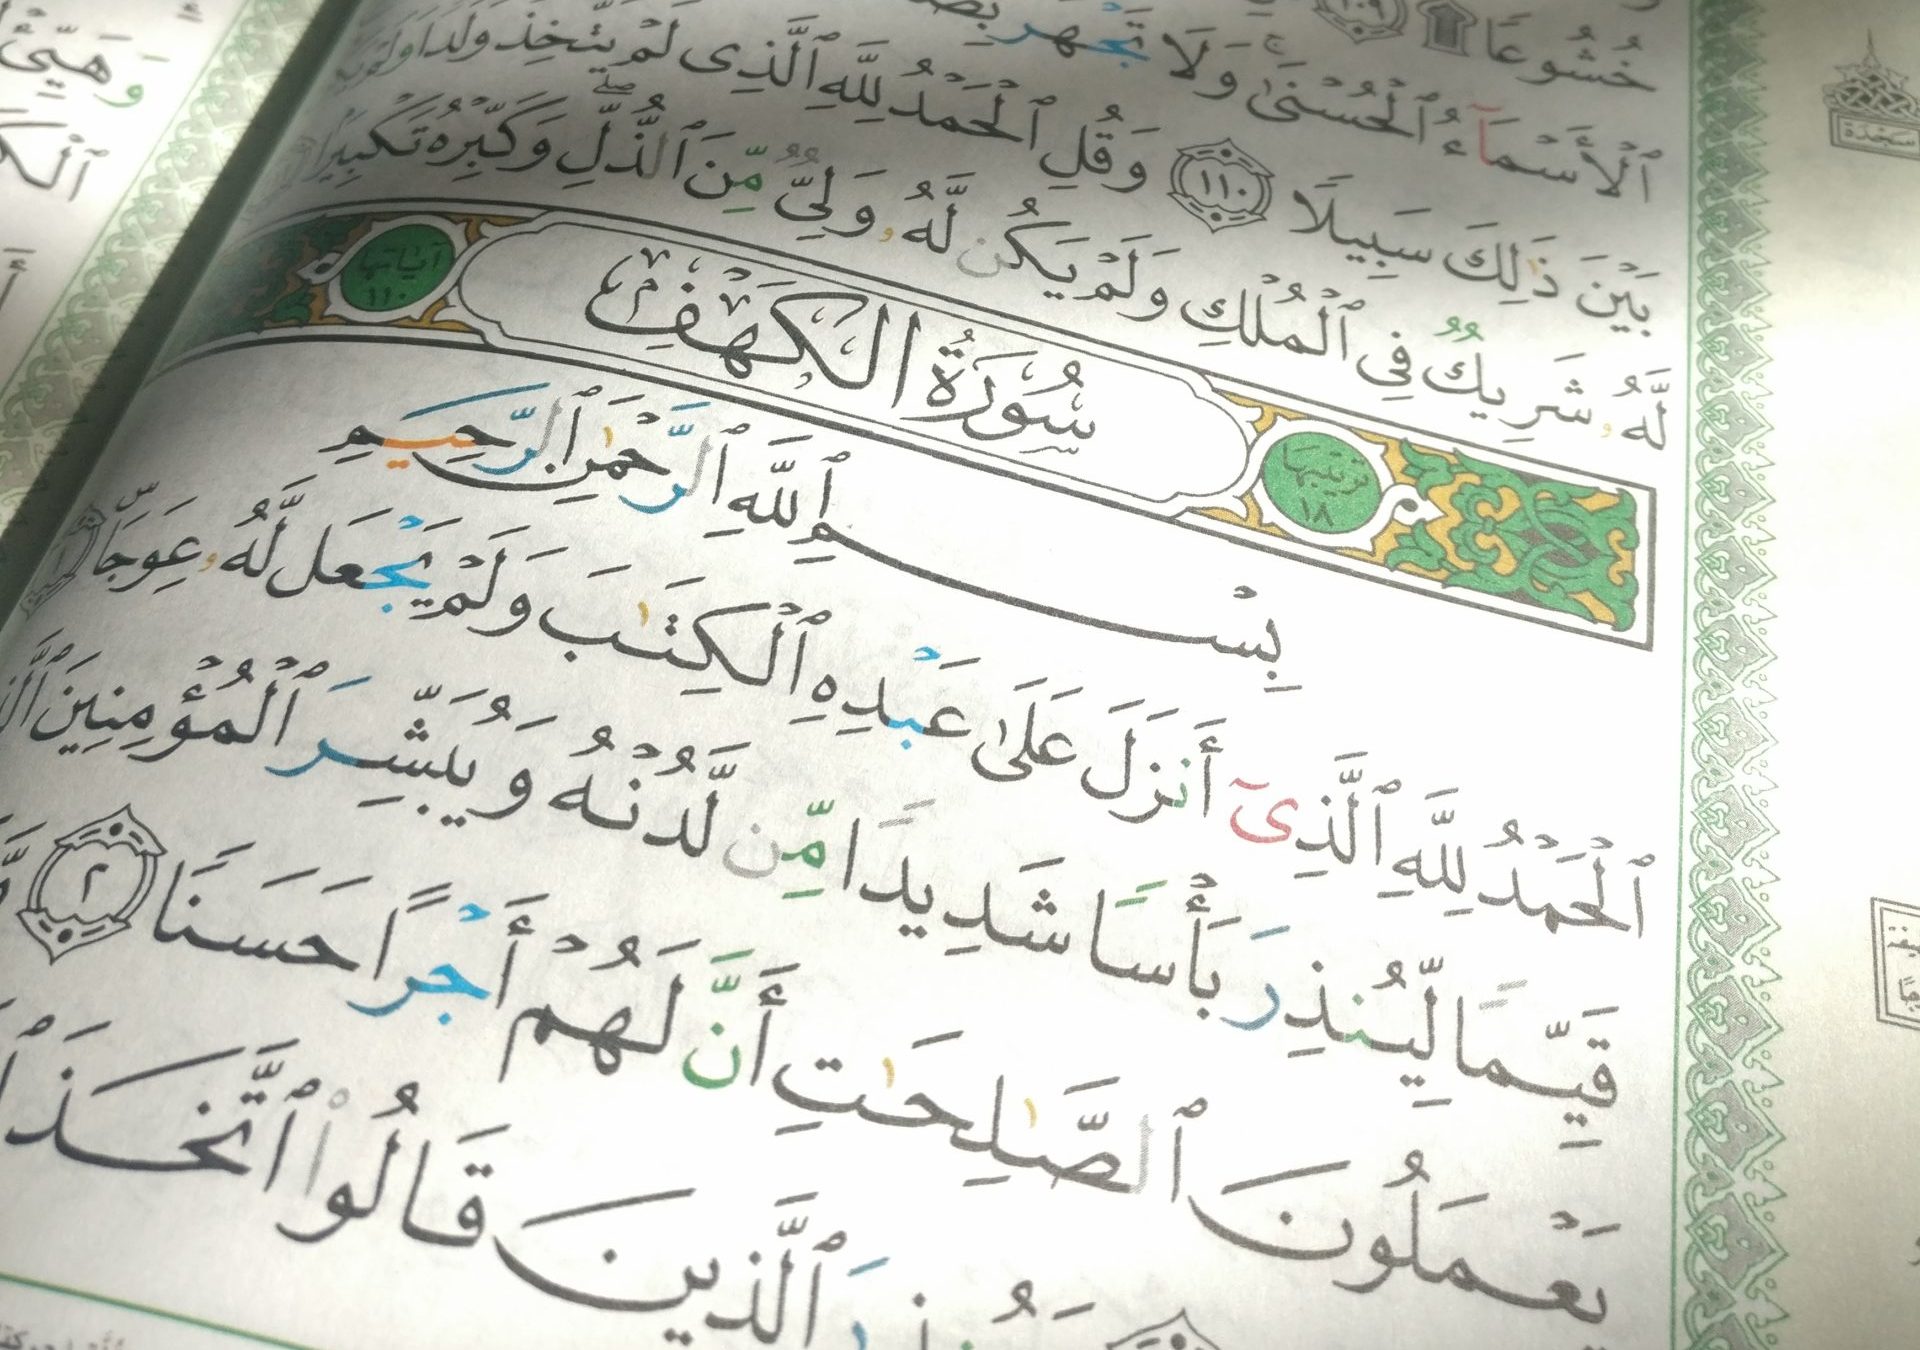 خُشُوعًا ١٠٩
ٱلْأَسْمَآءُ ٱلْحُسْنَىٰ وَلَا تَجْهَرْ
بَيْنَ ذَٰلِكَ سَبِيلًا ١١٠ وَقُلِ ٱلْحَمْدُ لِلَّهِ ٱلَّذِى لَمْ يَتَّخِذْ وَلَدًا وَلَمْ يَكُن
لَّهُۥ شَرِيكٌ فِى ٱلْمُلْكِ وَلَمْ يَكُن لَّهُۥ وَلِىٌّ مِّنَ ٱلذُّلِّ ۖ وَكَبِّرْهُ تَكْبِيرًۢا
ترتيبها ١٨ سُورَةُ الكَهْفِ آياتها ١١٠
بِسْمِ ٱللَّهِ ٱلرَّحْمَٰنِ ٱلرَّحِيمِ
ٱلْحَمْدُ لِلَّهِ ٱلَّذِىٓ أَنزَلَ عَلَىٰ عَبْدِهِ ٱلْكِتَٰبَ وَلَمْ يَجْعَل لَّهُۥ عِوَجَاۜ ١
قَيِّمًا لِّيُنذِرَ بَأْسًا شَدِيدًا مِّن لَّدُنْهُ وَيُبَشِّرَ ٱلْمُؤْمِنِينَ
يَعْمَلُونَ ٱلصَّٰلِحَٰتِ أَنَّ لَهُمْ أَجْرًا حَسَنًا ٢
ٱلَّذِينَ قَالُوا۟ ٱتَّخَذَ
سجدة